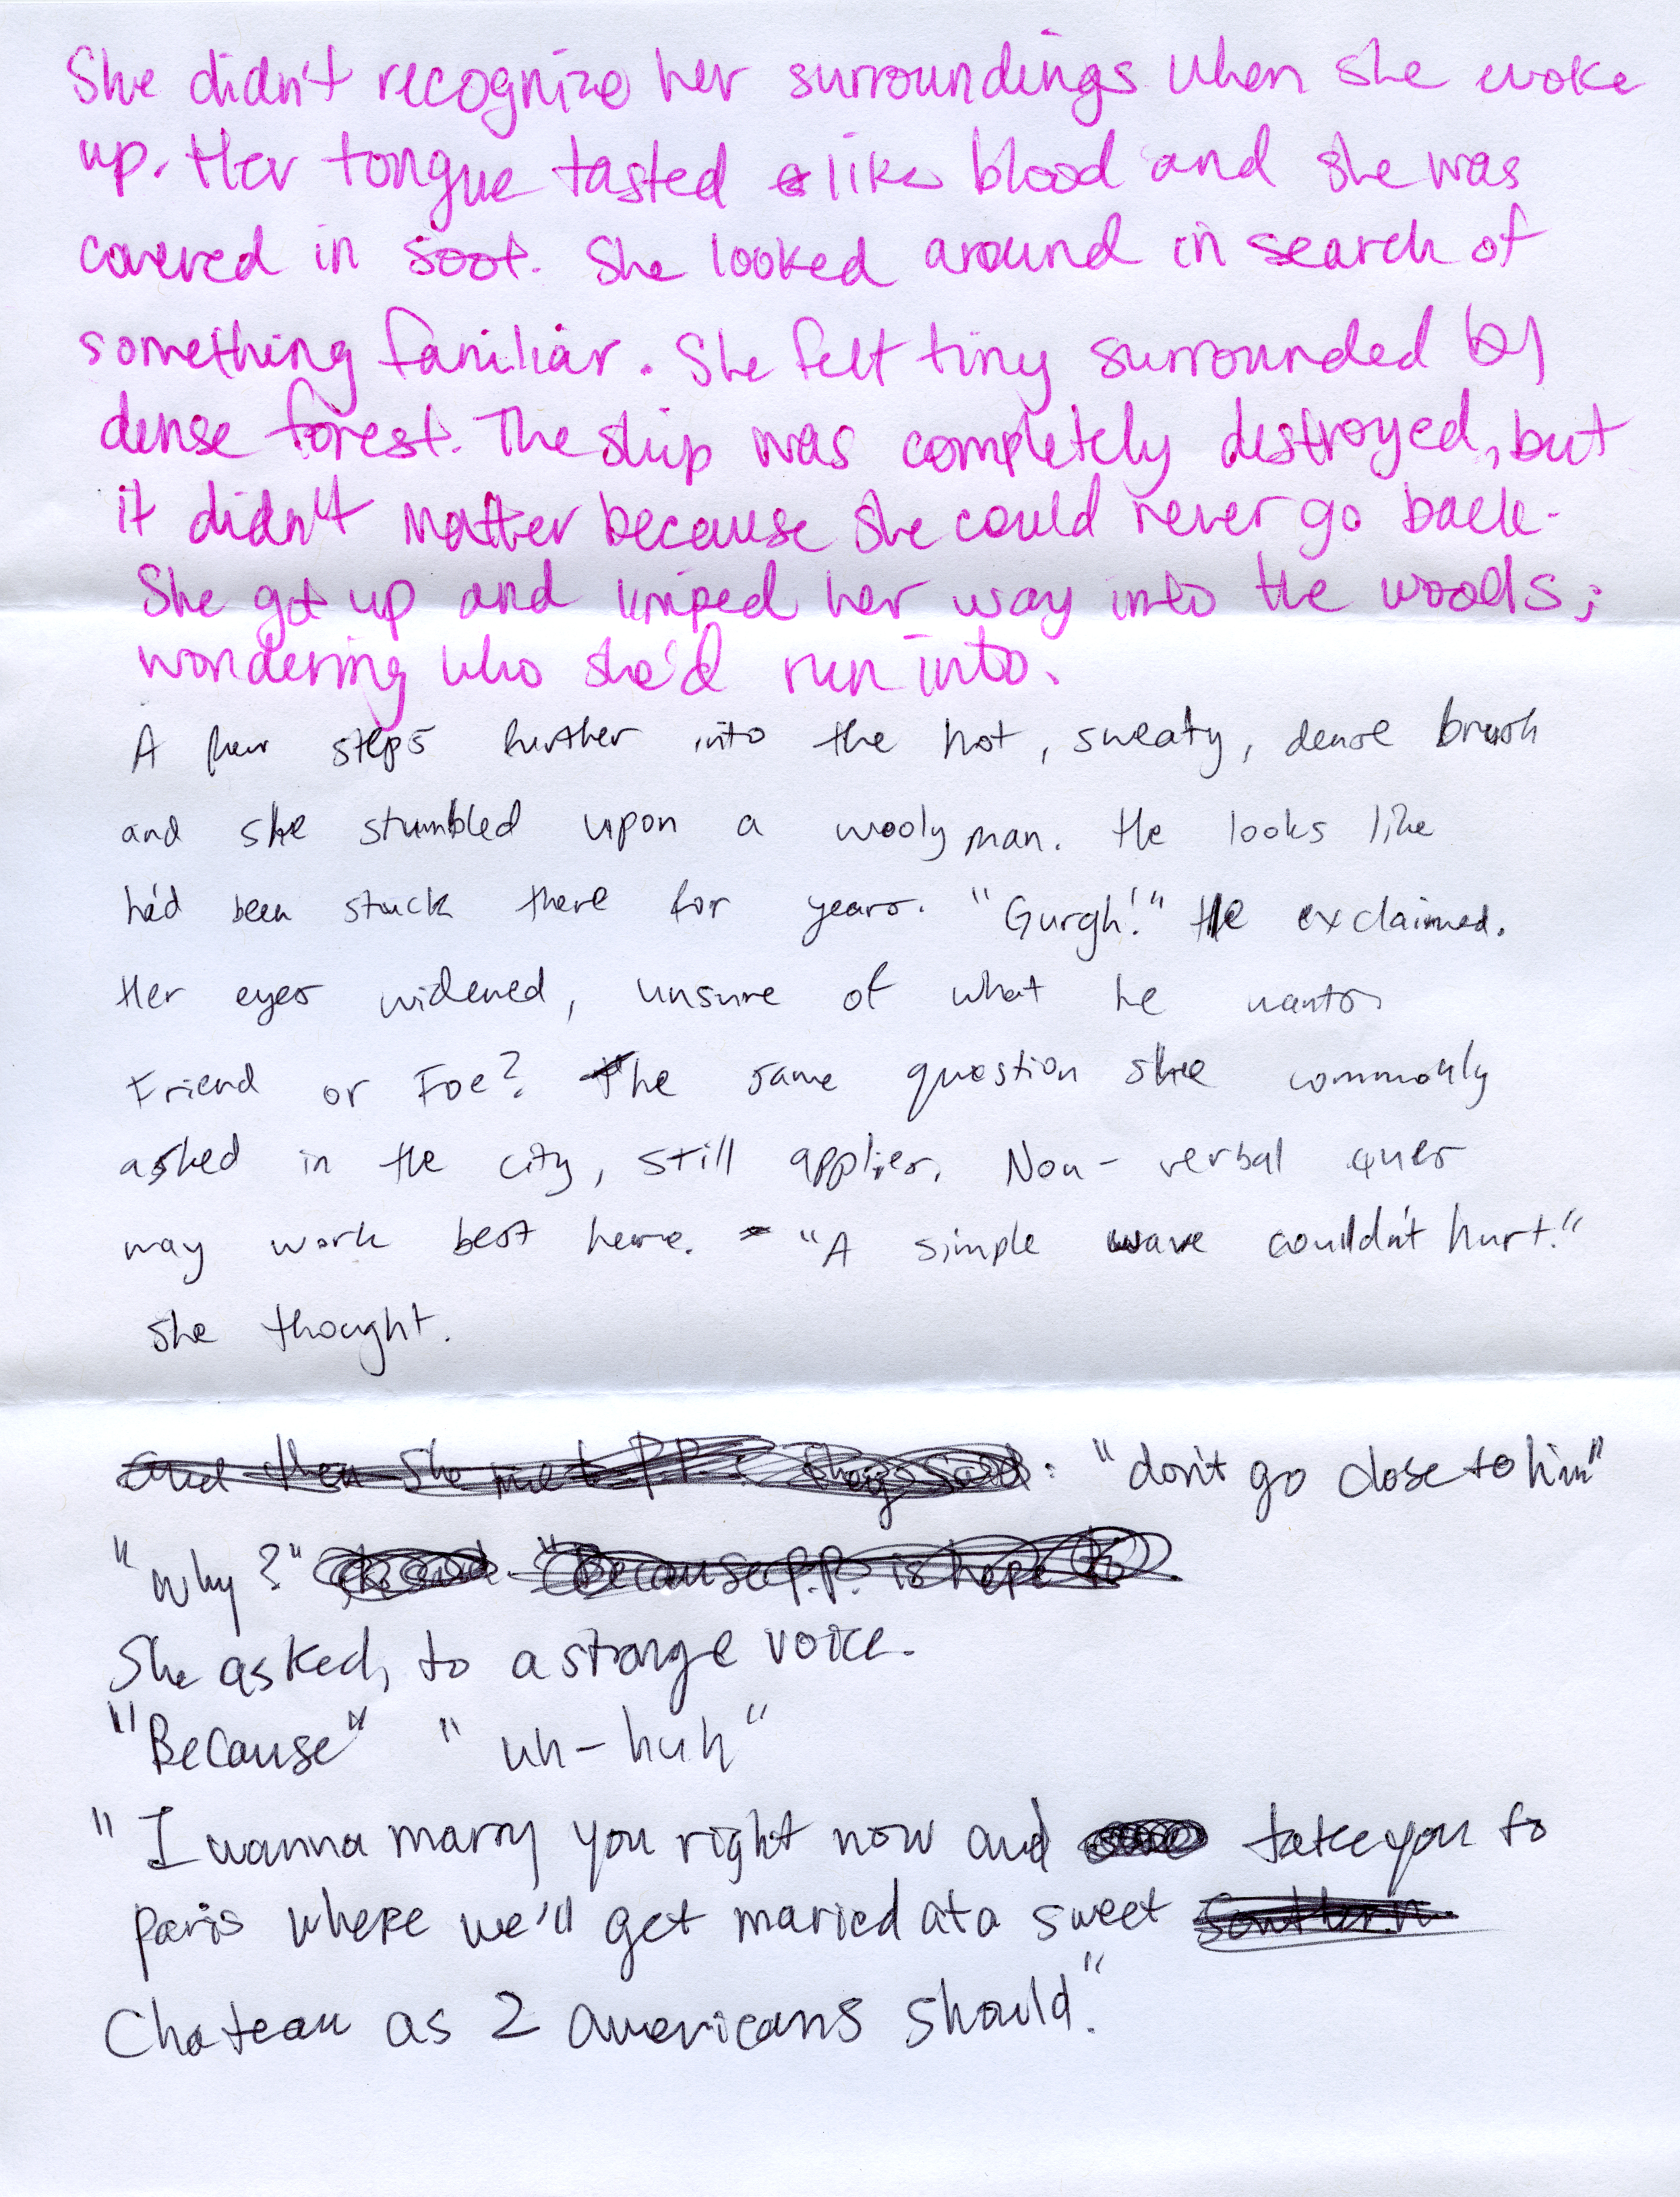 She didn't recognize her surroundings when she woke
up. Her tongue tasted like blood and she was
covered in soot. She looked around in search of
something familiar. She felt tiny surrounded by
dense forest. The ship was completely destroyed, but
it didn't matter because she could never go back.
She got up and limped her way into the woods;
wondering who she'd run into.
A few steps further into the hot, sweaty, dense brush
and she stumbled upon a wooly man. He looks like
he'd been stuck there for years. "Gurgh!" He exclaimed.
Her eyes widened, unsure of what he wants.
Friend or Foe? The same question she commonly
asked in the city, still applies. Non-verbal ques
may work best here. "A simple wave couldn't hurt."
she thought.
and then she met P.P. they said: "don't go close to him"
"why?" "Because P.P. is here
She asked, to a strange voice.
"Because" "uh-huh"
"I wanna marry you right now and take you to
paris where we'll get maried at a sweet southern
Chateau as 2 americans should."